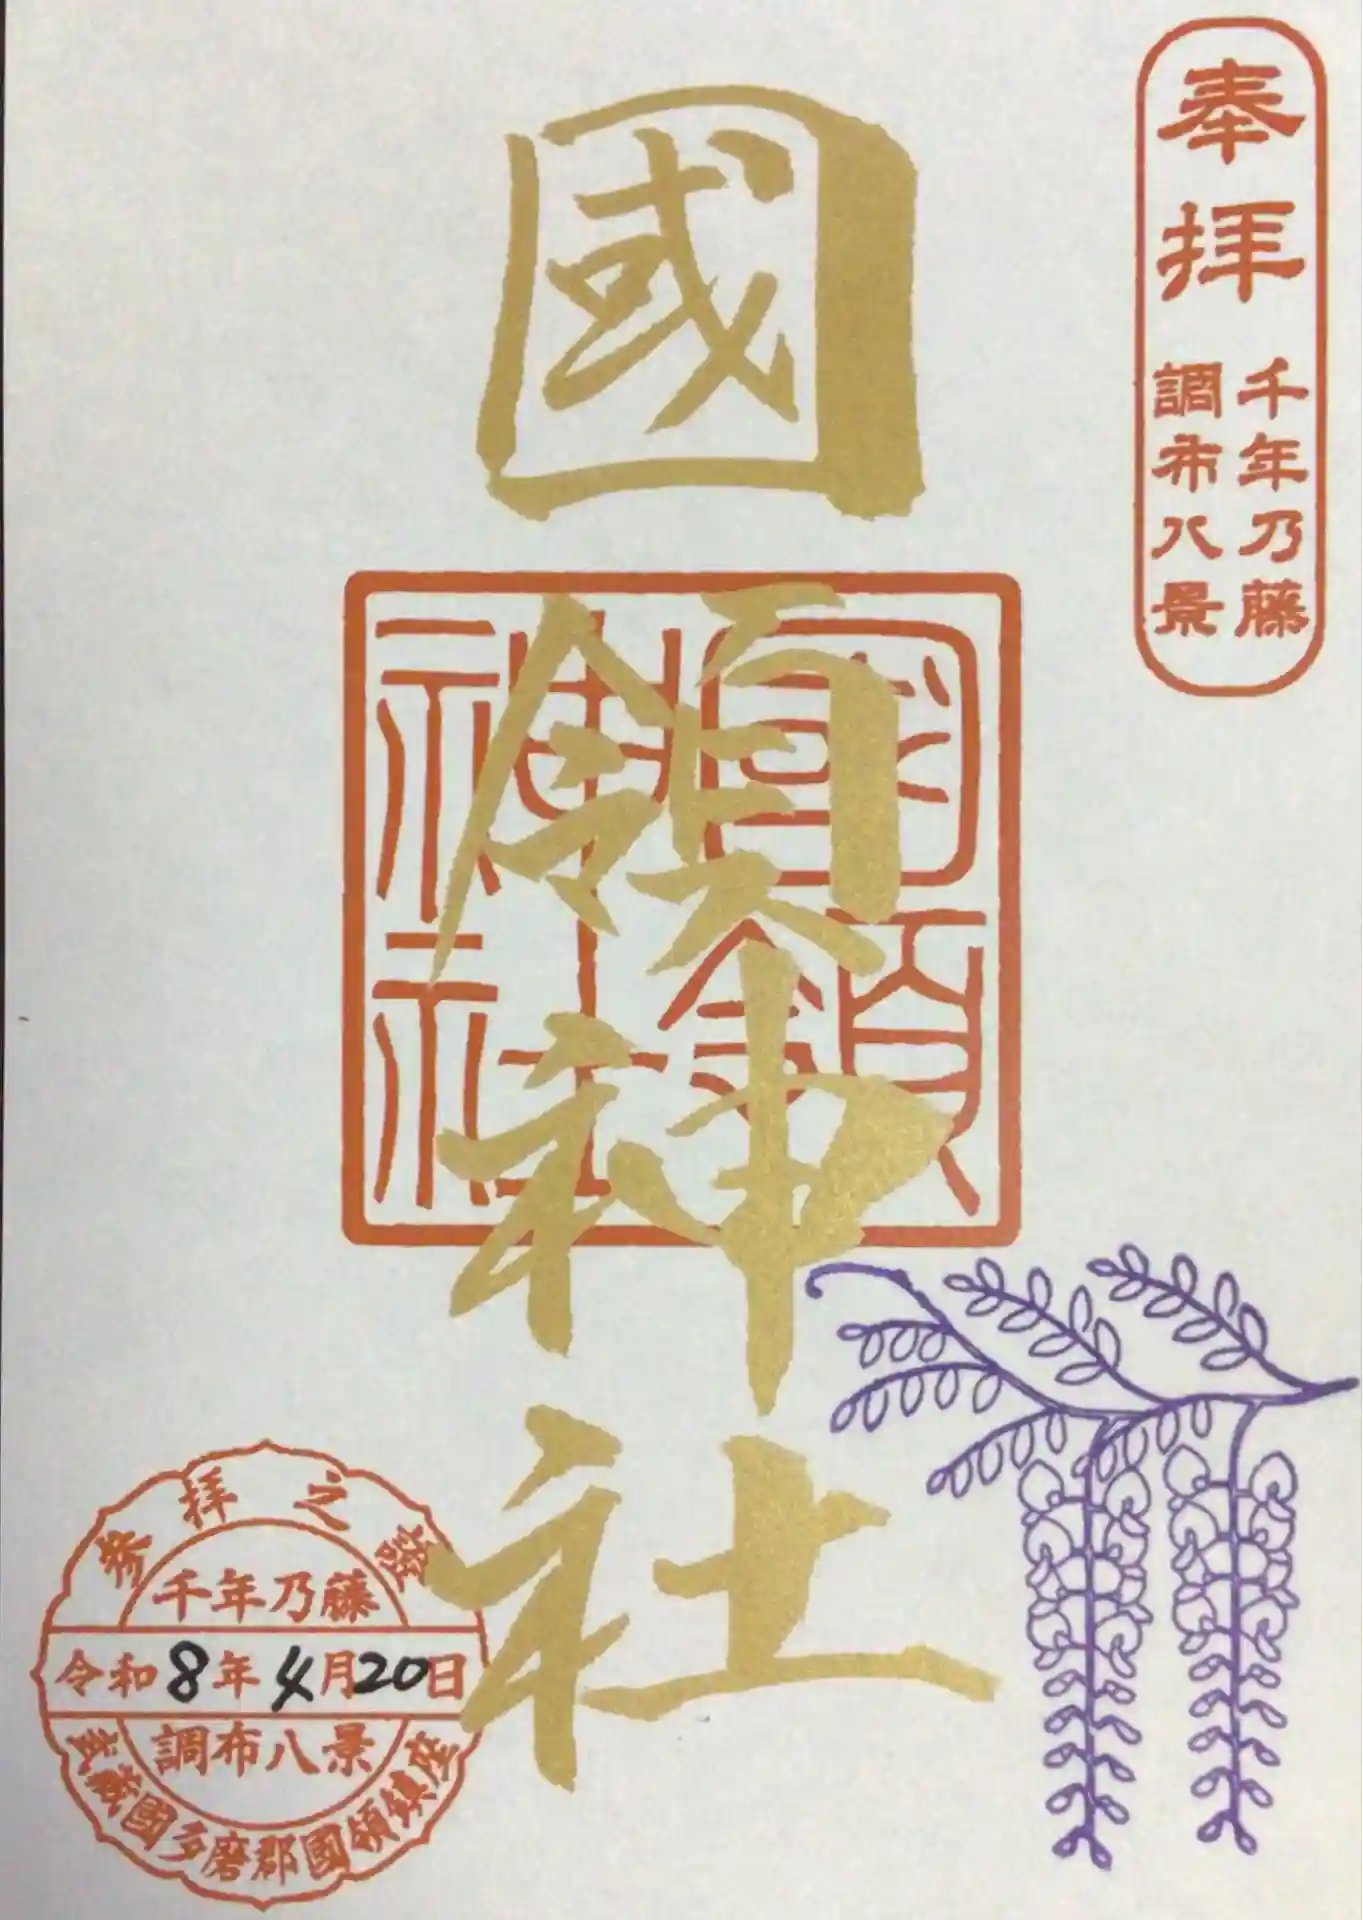 奉拝
千年乃藤
調布八景
國領神社
國領
神社
參拝之證
千年乃藤
令和8年4月20日
調布八景
武蔵國多磨郡國領鎮座